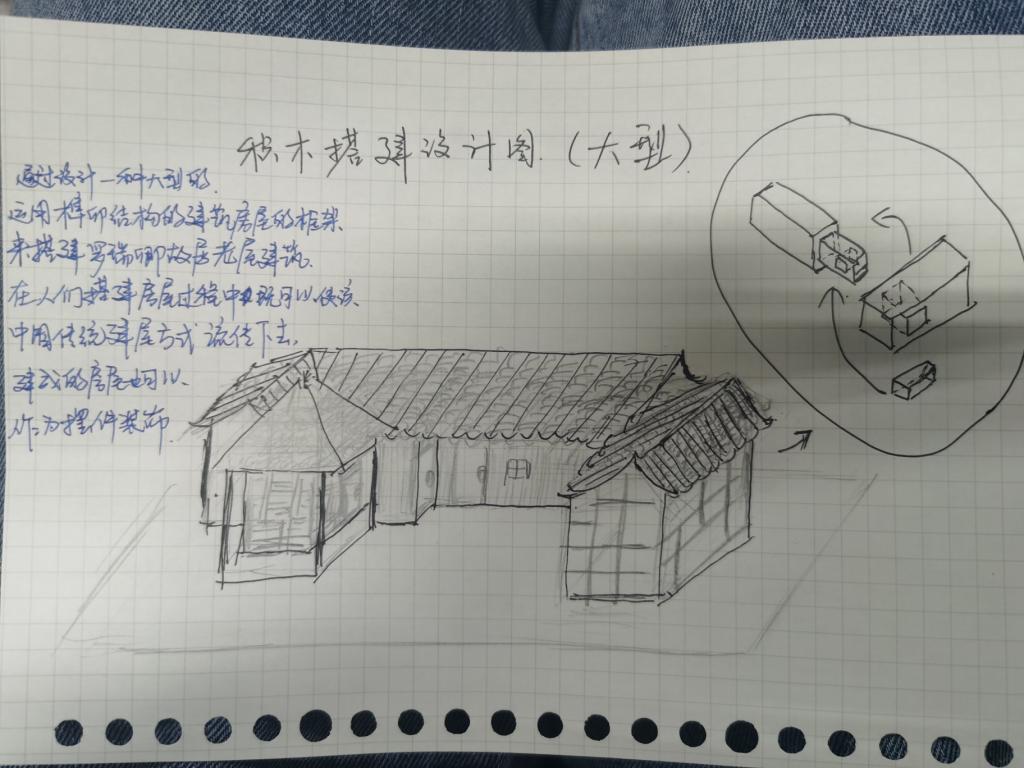 积木搭建设计图.（大型）
通过设计一种大型的.
运用榫卯结构的建筑房屋的框架.
来搭建罗瑞卿故居老屋建筑.
在人们搭建房屋过程中既可以使该.
中国传统建屋方式流传下去.
建成的房屋也可以.
作为摆件装饰.